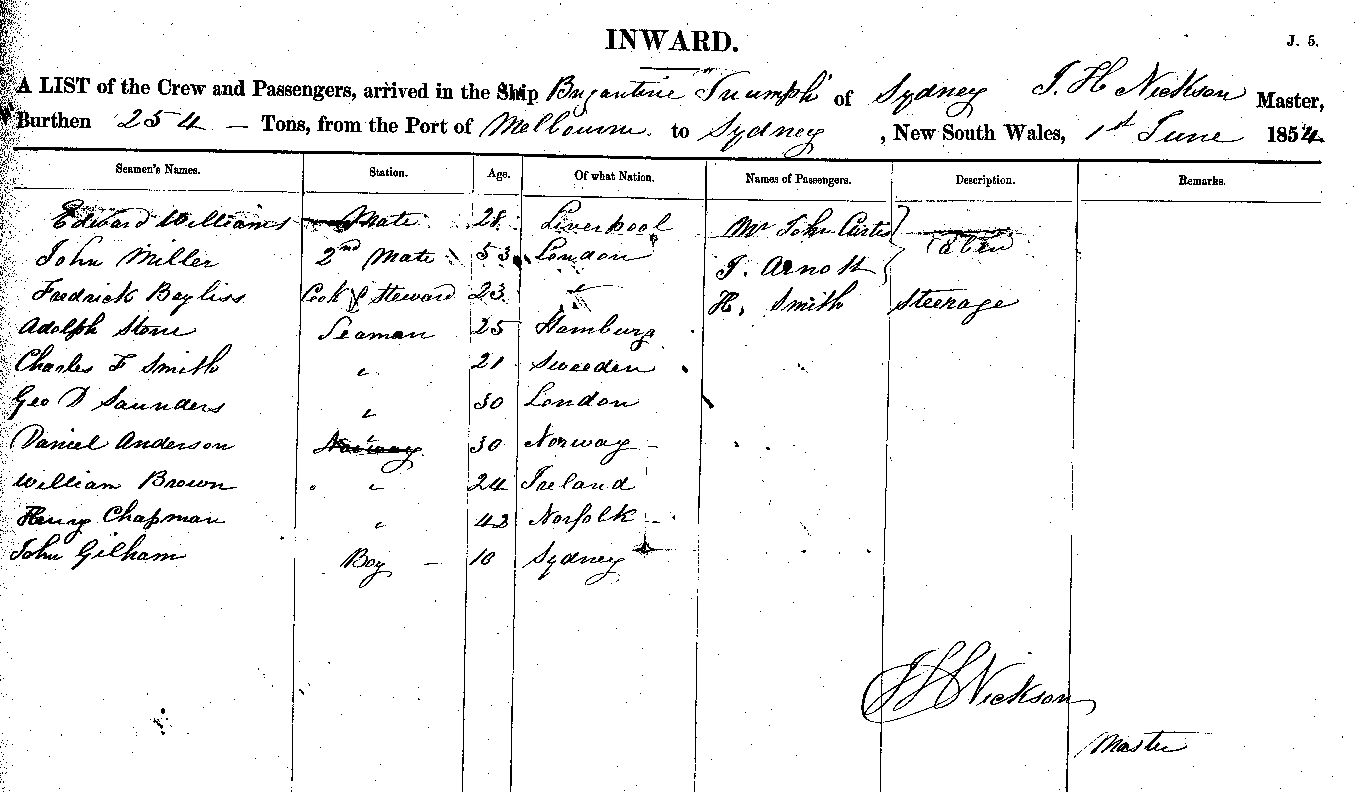 INWARD.
J. 5.
A LIST of the Crew and Passengers, arrived in the Ship Brigantine "Triumph" of Sydney J. H Nickson Master,
Burthen 254 — Tons, from the Port of Melbourne to Sydney, New South Wales, 1st June 1854
Seamen's Names. Station. Age. Of what Nation. Names of Passengers. Description. Remarks.
Edward Williams Mate 28 Liverpool Mr John Curtis
John Miller 2nd Mate 53 London J. Arnott Cabin
Fredrick Bayliss Cook & Steward 23 " H. Smith Steerage
Adolph Stone Seaman 25 Hamburg
Charles F Smith " 21 Sweeden
Geo D Saunders " 30 London
Daniel Anderson Norway 30 Norway —
William Brown " 24 Ireland
Henry Chapman " 42 Norfolk —
John Gilham Boy — 10 Sydney
J H Nickson
Master